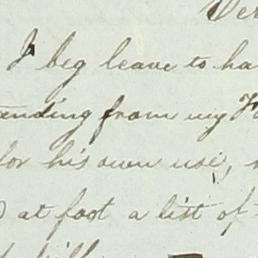 I beg leave to ha
ending from my F
for his own use,
at foot a list of